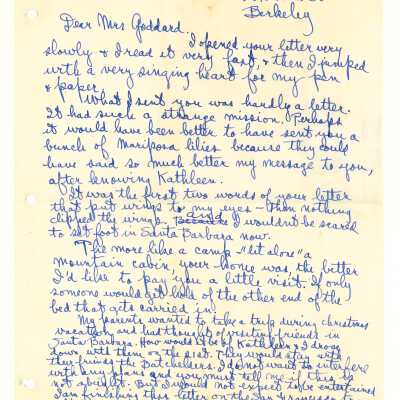 Berkeley
Dear Mrs Goddard
I opened your letter very
slowly & I read it very fast, & then I jumped
with a very singing heart for my pen
& paper.
What I sent you was hardly a letter.
It had such a strange mission. Perhaps
it would have been better to have sent you a
bunch of Mariposa lilies because they could
have said so much better my message to you,
after knowing Kathleen.
It was the first two words of your letter
that put wings to my eyes - then nothing
clipped the wings. and I wouldn't be scared
to set foot in Santa Barbara now.
The more like a camp "let alone" a
mountain cabin, your home was, the better
I'd like to pay you a little visit. If only
someone would get hold of the other end of the
bed that gets carried in.
My parents wanted to take a trip during christmas
vacation, and had thought of visiting friends in
Santa Barbara. How would it be if Kathleen & I drove
down, with them on the seat. They would stay with
their friends the Batchellers. I do not want to interfere
with any plans and you must tell me if this is
not a bright. But I would not expect to be entertained
I am finishing this letter on the San Francisco to